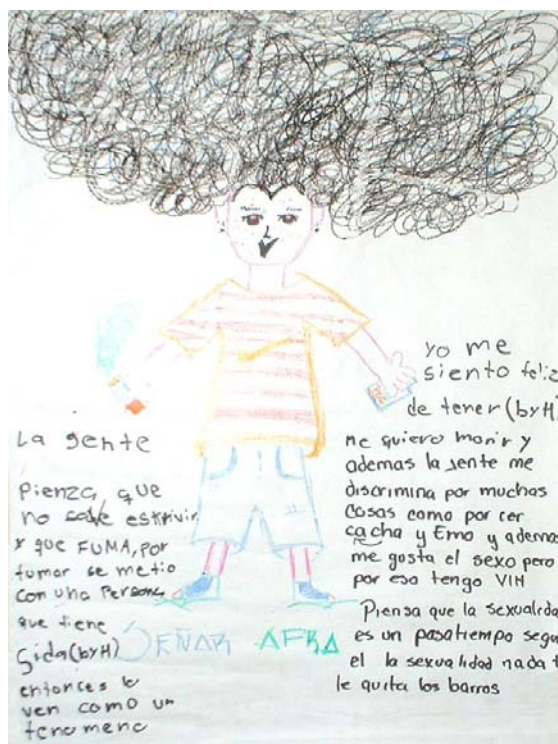 La gente
Pienza, que
no save estrivir
y que FUMA, por
fumar se metio
con una Persona
que tiene
Sida(byH)
entonces le
ven como un
fenomeno
SEÑAR AFRA
Yo me
siento feliz
de tener (byH)
me quiero morir y
ademas la jente me
discrimina por muchas
cosas como por cer
cacha y Emo y ademas
me gusta el sexo pero
por eso tengo VIH
Piensa que la sexualida
es un pasatiempo segu
el la sexualidad nada t
le quita los barros